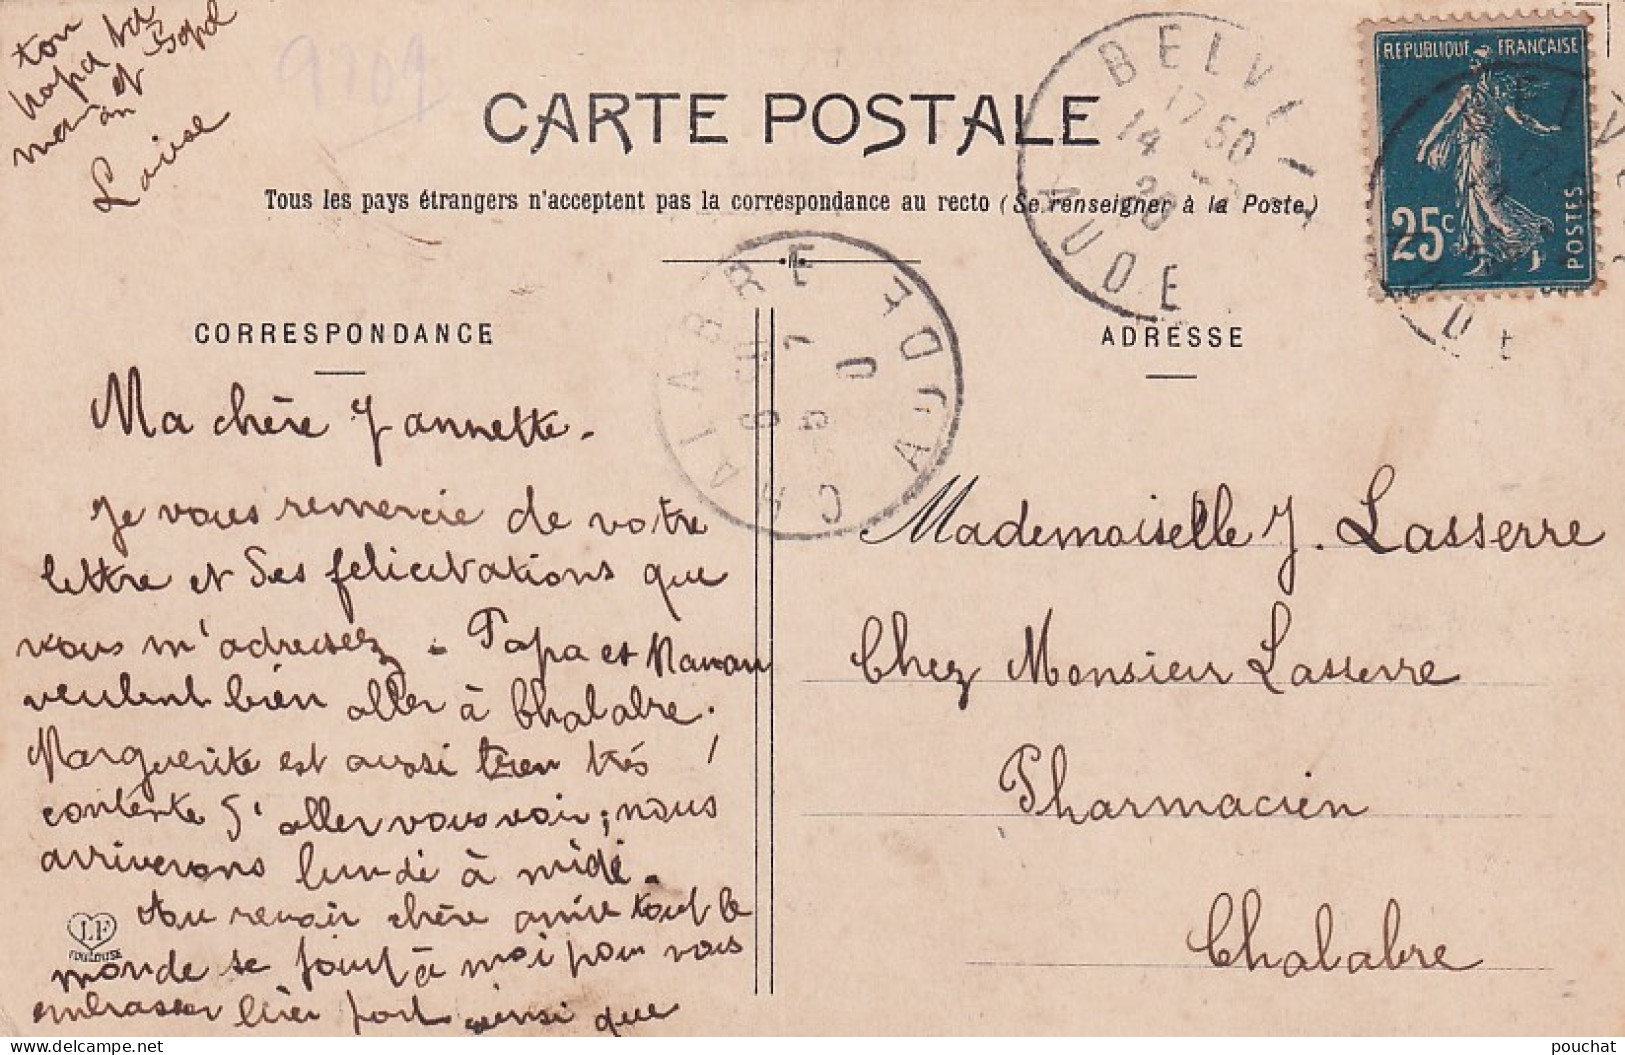 ton
papa ta
maman et
Louise
9709
CARTE POSTALE
Tous les pays étrangers n'acceptent pas la correspondance au recto (Se renseigner à la Poste.)
BELV
17 50
14
20
AUDE
REPUBLIQUE FRANÇAISE
25c
POSTES
CHALABRE
AUDE
CORRESPONDANCE
Ma chère Jannette.
Je vous remercie de votre
lettre et des felicitations que
vous m'adressez. Papa et Maman
veulent bien aller à Chalabre.
Marguerite est aussi très
contente d'aller vous voir; nous
arriverons lundi à midi.
Au revoir chère amie tout le
monde se joint à moi pour vous
embrasser bien fort ainsi que
LF
TOULOUSE
ADRESSE
Mademoiselle J. Lasserre
Chez Monsieur Lasserre
Pharmacien
Chalabre
delcampe.net
pouchat